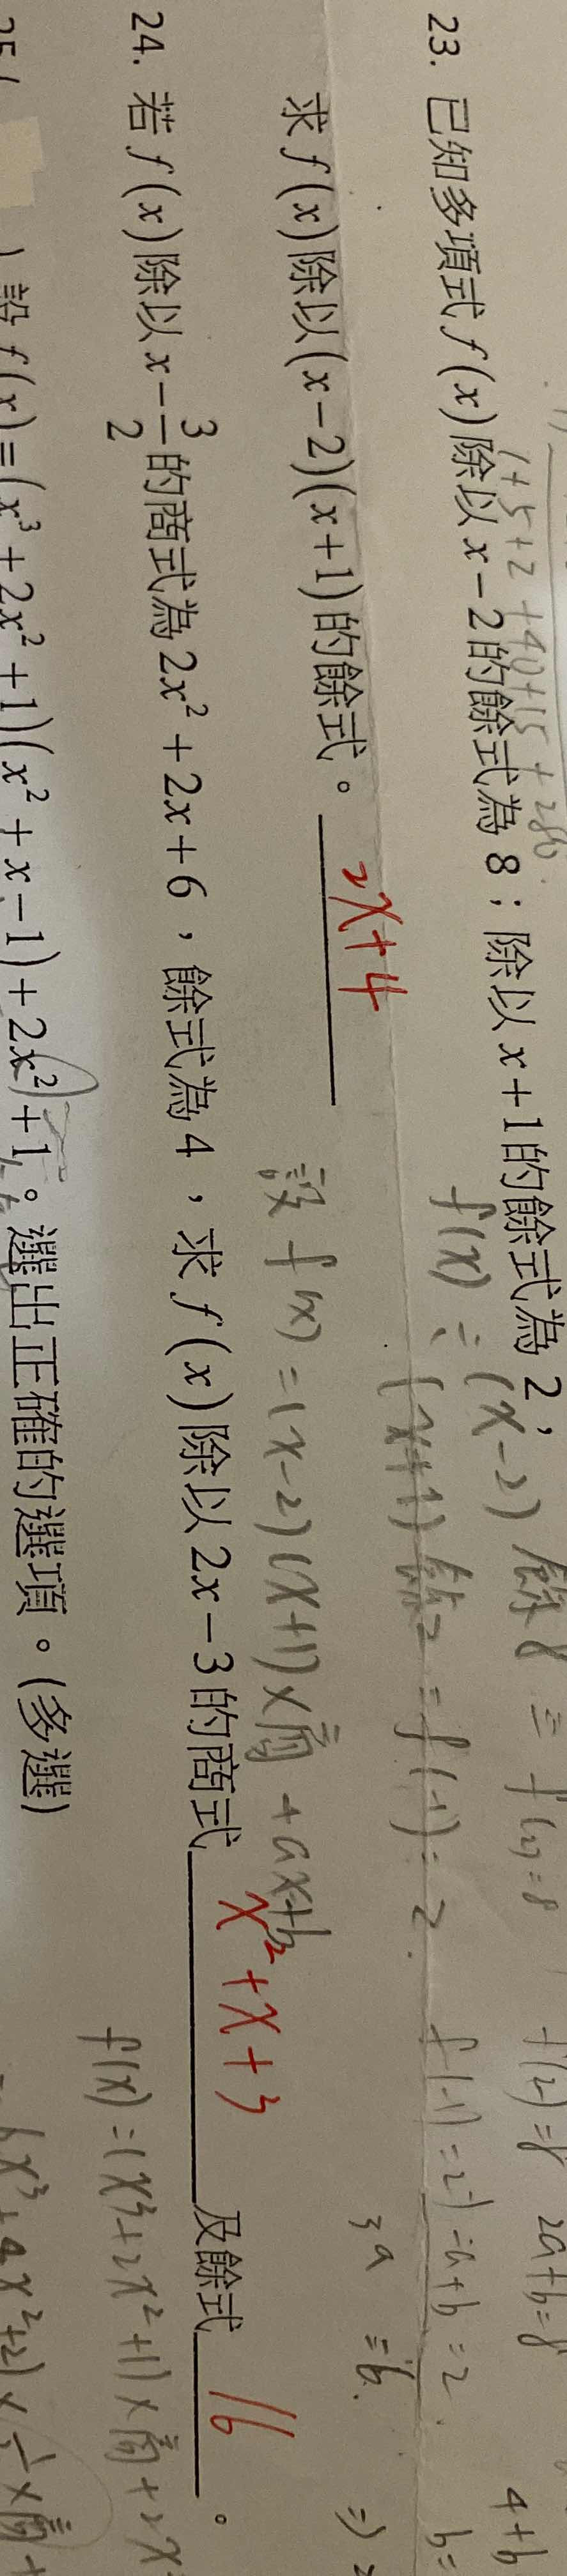 1+5+2+40+15+280
23. 已知多項式 f(x) 除以 x-2 的餘式為 8；除以 x+1 的餘式為 2，
f(x) = (x-2) 餘8 = f(2)=8
f(2)=8 2a+b=8
4+b
(x+1) 餘2 = f(-1)=2.
f(-1)=2 -a+b=2
b=
3a=6.
求 f(x) 除以 (x-2)(x+1) 的餘式。 2x+4
設 f(x) = (x-2)(x+1)×商 + ax+b
24. 若 f(x) 除以 x-3/2 的商式為 2x²+2x+6，餘式為 4，求 f(x) 除以 2x-3 的商式 x²+x+3 及餘式 16 。
f(x)=(x³+2x²+1)×商+2x
設 f(x)=(x³+2x²+1)(x²+x-1)+2x²+1。選出正確的選項。(多選)